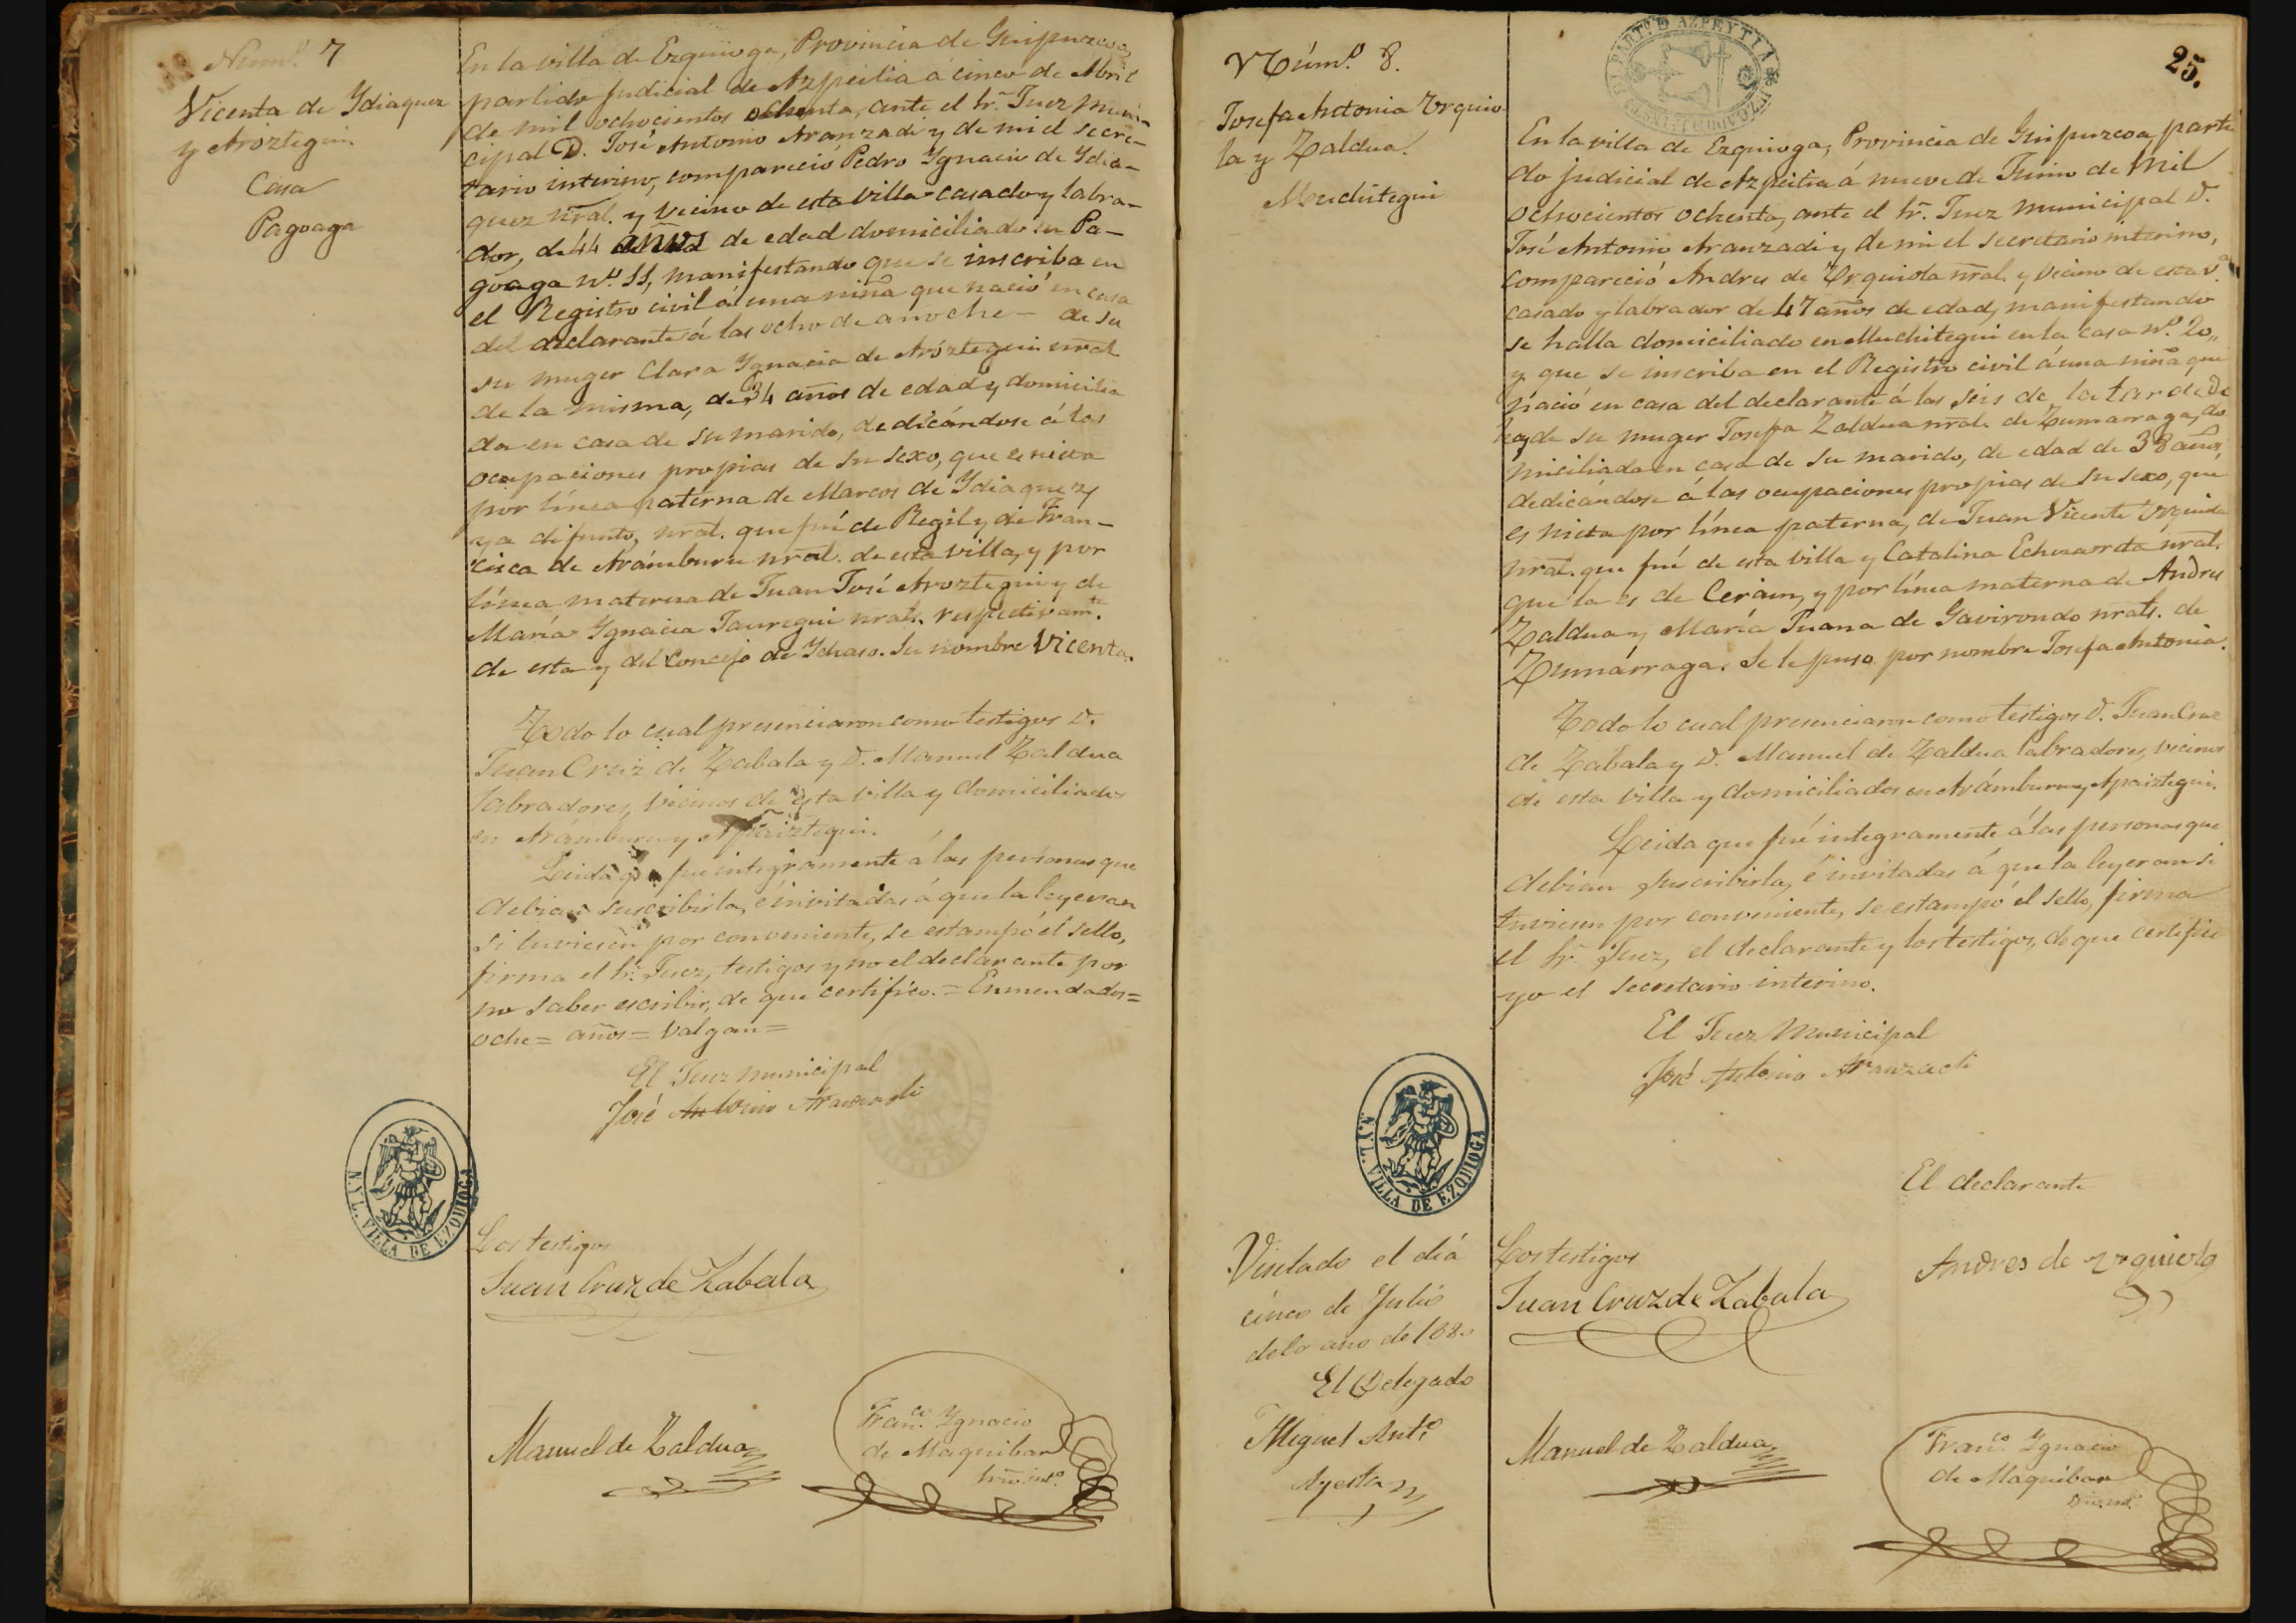 Núm.º 7
Vicenta de Ydiaquez
y Aroztegui.
Casa
Pagoaga
En la villa de Ezquioga, Provincia de Guipuzcoa,
partido judicial de Azpeitia á cinco de Abril
de mil ochocientos ochenta, ante el Sr. Juez Muni-
cipal D. José Antonio Aranzadi y de mi el secre-
tario interino, compareció Pedro Ygnacio de Ydia-
quez nral. y vecino de esta villa casado y labra-
dor, de 44 años de edad domiciliado en Pa-
goaga nº. 11, manifestando que se inscriba en
el Registro civil á una niña que nació en casa
del declarante á las ocho de anoche - de su
su muger Clara Ygnacia de Aróztegui nral.
de la misma, de 34 años de edad y domicilia
da en casa de su marido, dedicándose á las
ocupaciones propias de su sexo, que es nieta
por línea paterna de Marcos de Ydiaquez,
ya difunto, nral. que fué de Regil y de Fran-
cisca de Arámburu nral. de esta villa, y por
línea materna de Juan José Aroztegui y de
María Ygnacia Jauregui nrals. respectivamte.
de esta y del Concejo de Ychaso. Su nombre Vicenta.
Todo lo cual presenciaron como testigos D.
Juan Cruz de Zabala y D. Manuel Zaldua
labradores, vecinos de esta villa y domiciliados
en Aramburu y Apaiztegui.
Leida que fue integramente á las personas que
debian suscribirla, é invitadas á que la leyeran
si tuviesen por conveniente, se estampó el sello,
firma el Sr. Juez, testigos y no el declarante por
no saber escribir, de que certifico. = Enmendados =
oche = años = valgan =
El Juez municipal
José Antonio Aranzadi
N. Y L. VILLA DE EZQUIOGA
Los testigos
Juan Cruz de Zabala
Manuel de Zaldua
Franco. Ygnacio
de Maquibar
Srio. into.
25.
Núm.º 8.
Josefa Antonia Urquio
la y Zaldua.
Muchitegui
En la villa de Ezquioga, Provincia de Guipuzcoa, parti
do judicial de Azpeitia á nueve de Junio de Mil
ochocientos ochenta, ante el Sr. Juez municipal D.
José Antonio Aranzadi y de mi el secretario interino,
compareció Andres de Urquiola nral. y vecino de esta va.
casado y labrador de 47 años de edad, manifestando
se halla domiciliado en Muchitegui en la casa nº. 20,,
y que se inscriba en el Registro civil á una niña que
nació en casa del declarante á las seis de la tarde de
hoy de su muger Josefa Zaldua nral. de Zumarraga, do
miciliada en casa de su marido, de edad de 38 años,
dedicándose á las ocupaciones propias de su sexo, que
es nieta por línea paterna, de Juan Vicente Urquiola
nral. que fué de esta villa y Catalina Echevarria nral.
que la es de Cerain, y por línea materna de Andres
Zaldua y María Juana de Gavirondo nrals. de
Zumárraga. Se le puso por nombre Josefa Antonia.
Todo lo cual presenciaron como testigos D. Juan Cruz
de Zabala y D. Manuel de Zaldua labradores, vecinos
de esta villa y domiciliados en Arámburu y Apaiztegui.
Leida que fué integramente á las personas que
debian suscribirla, é invitadas á que la leyeran si
tuviesen por conveniente, se estampó el sello, firma
el Sr. Juez, el declarante y los testigos, de que certifico
yo el secretario interino.
El Juez Municipal
José Antonio Aranzadi
N. Y L. VILLA DE EZQUIOGA
El declarante
Andres de Urquiola
Los testigos
Juan Cruz de Zabala
Visitado el dia
cinco de Julio
del año de 1880
El Delegado
Miguel Anto.
Ayesta
Manuel de Zaldua
Franco. Ygnacio
de Maquibar
Srio. int.